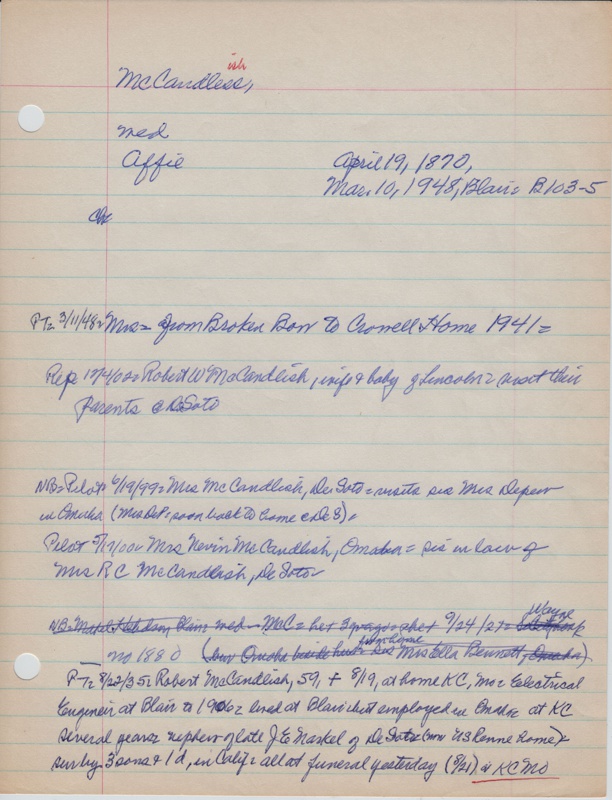 ish
McCandless,
med
Affie April 19, 1870,
Mar. 10, 1948, Blair= B103-5
Ch
PT= 3/11/48= Mrs= from Broken Bow to Crowell Home 1941=
Rep Robert W McCandlish, wife & baby of Lincoln= visit their
Parents @ DeSoto
NB= Pilot 6/19/99= Mrs McCandlish, De Soto= visits sis Mrs Depew
in Omaha (Mrs Dep= soon back to home @ De S)=
Pilot Mrs Nevin McCandlish, Omaha= sis in law of
Mrs R C McCandlish, De Soto=
NB= Blair med McC= her 9/24/27= Wayne
from home
no 1880 (bur Omaha sis Mrs Ella Bennett, Omaha)
PT= 8/22/35= Robert McCandlish, 59, + 8/19, at home KC, Mo= Electrical
Engineer at Blair to 1906= lived at Blair but employed in at KC
several years= nephew of late J E Markel of De Soto (now Rome)=
surv by 3 sons & 1 d, in Calif= all at funeral yesterday (8/21) @ KC Mo